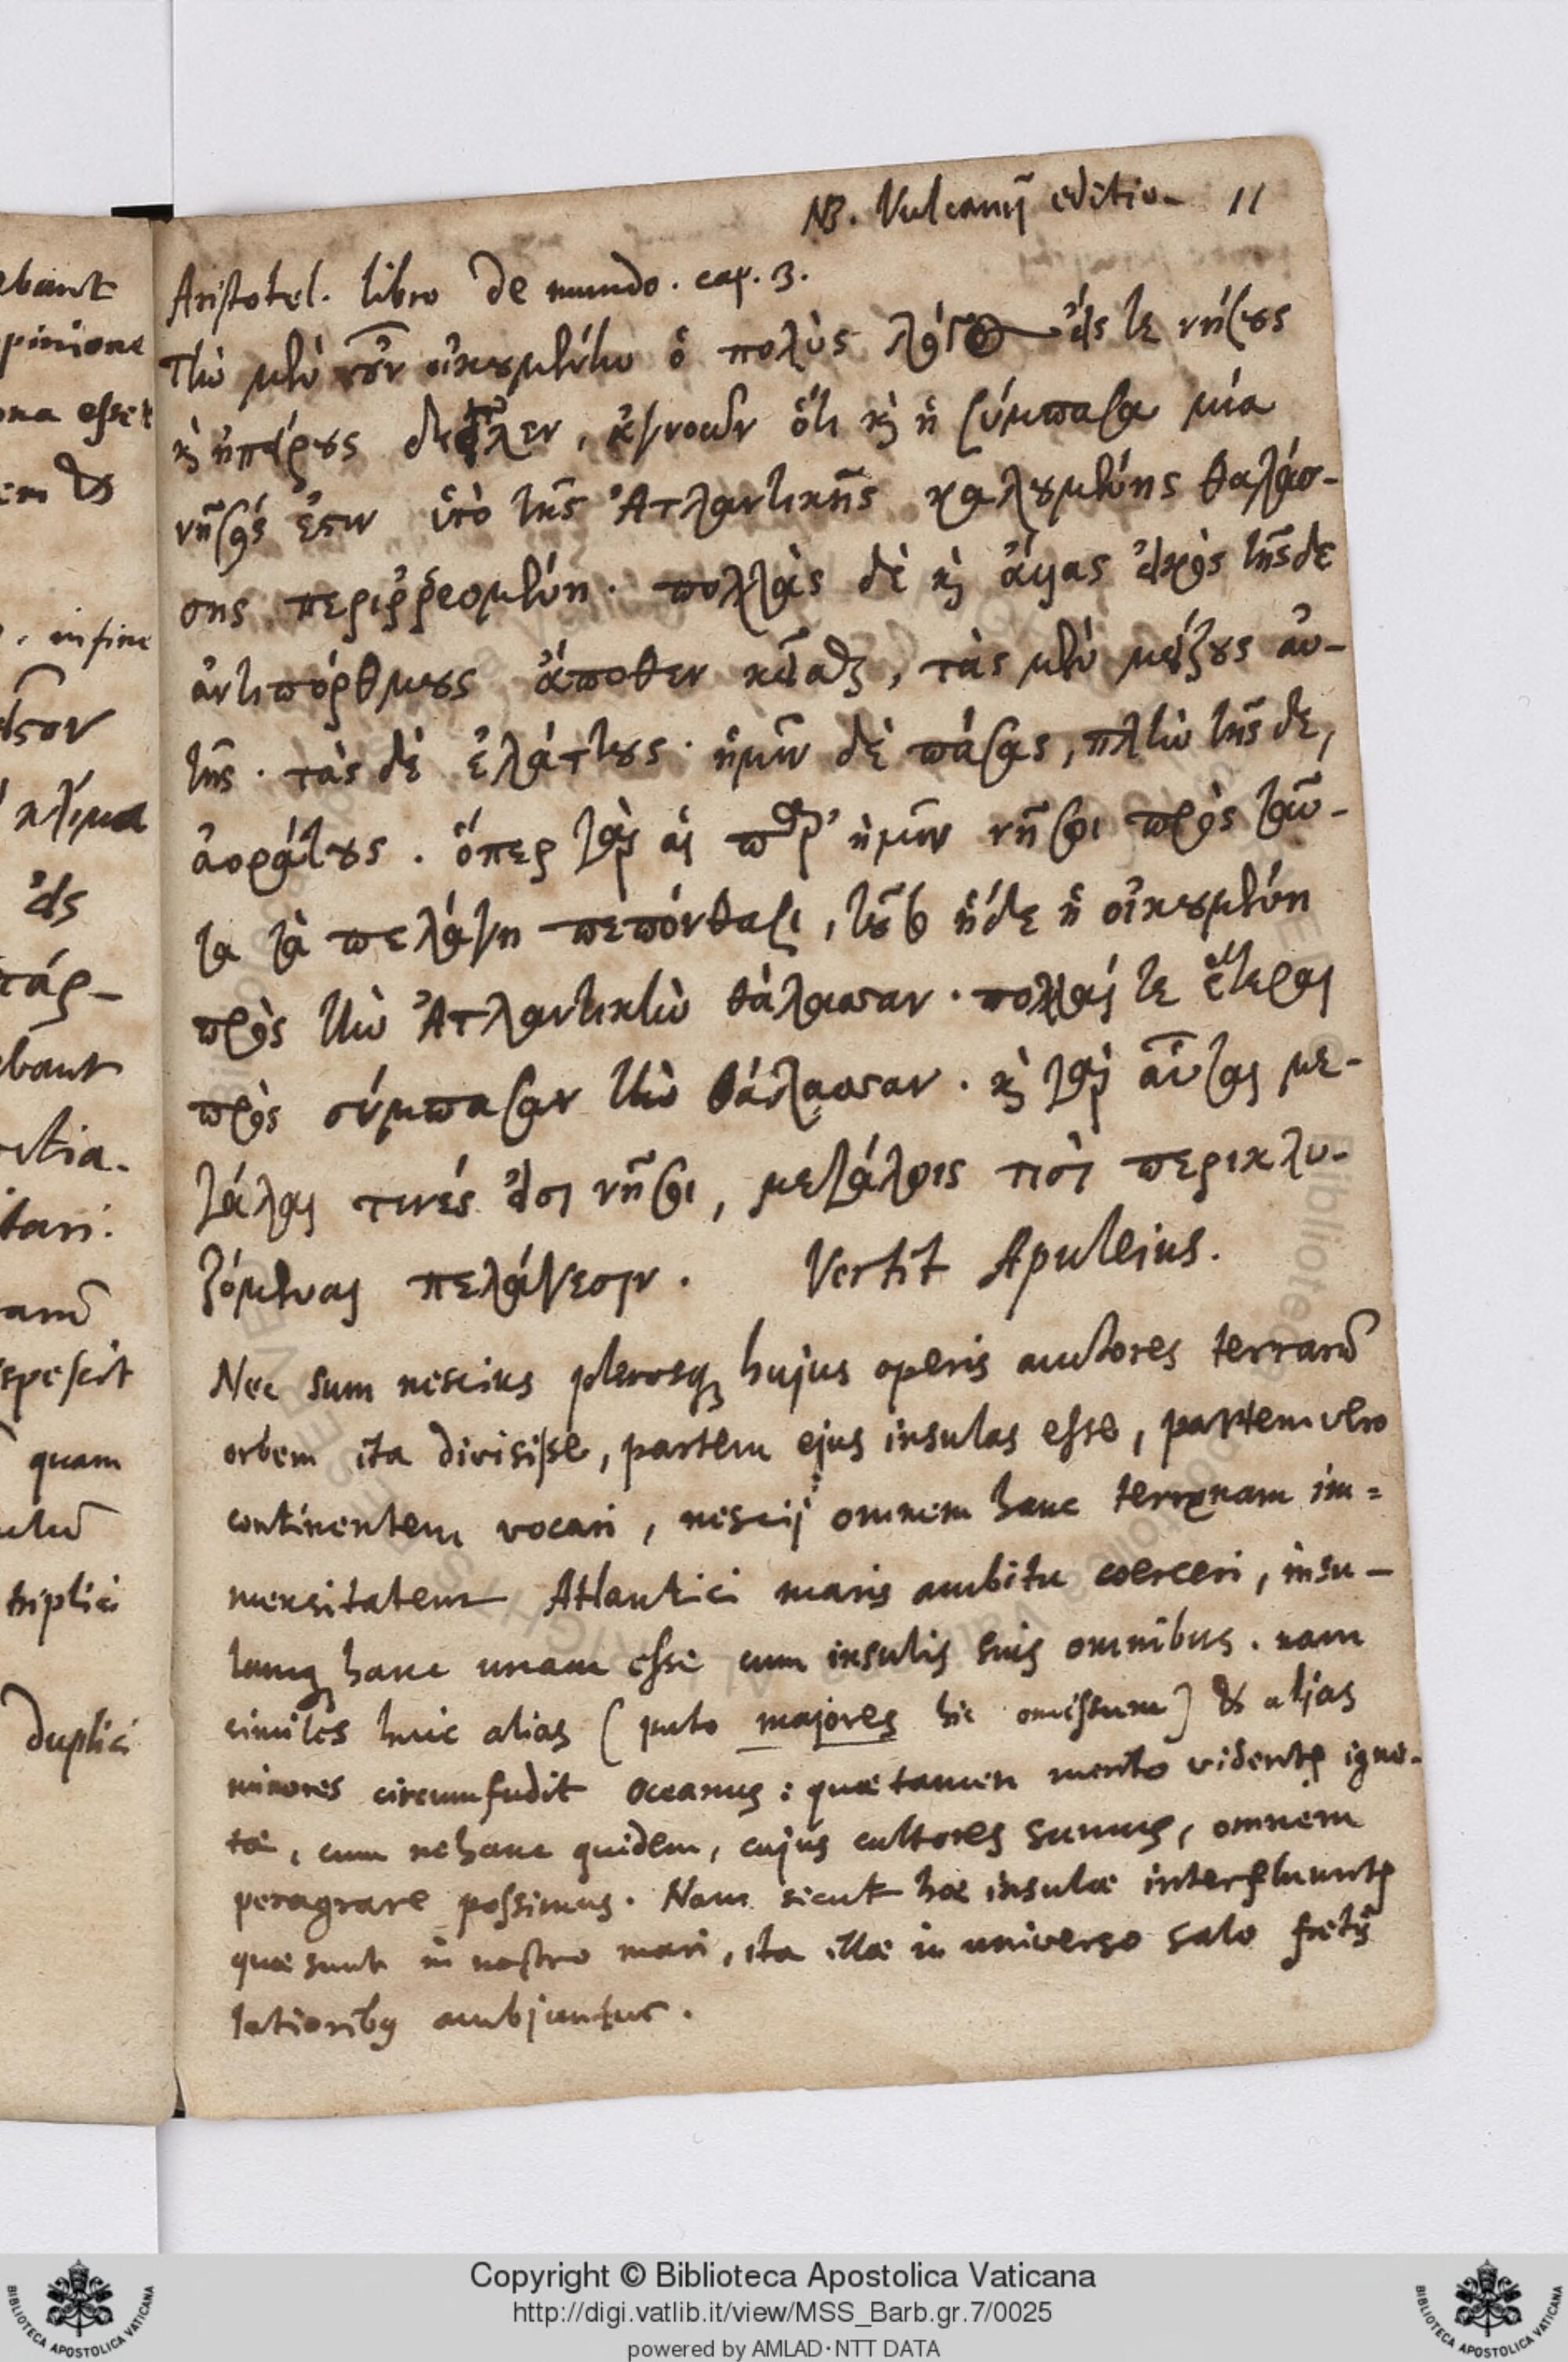 NB. Vulcanij editio- 11
Aristotel. libro de mundo. cap. 3.
Τὴν μὲν οὖν οἰκουμένην ὁ πολὺς λόγος εἴς τε νήσους
καὶ ἠπείρους διεῖλεν, ἀγνοῶν ὅτι καὶ ἡ σύμπασα μία
νῆσός ἐστιν ὑπὸ τῆς Ἀτλαντικῆς καλουμένης θαλάσ-
σης περιῤῥεομένη. πολλὰς δὲ καὶ ἄλλας εἰκὸς τῆσδε
ἀντιπόρθμους ἄποθεν κεῖσθαι, τὰς μὲν μείζους αὐ-
τῆς. τὰς δὲ ἐλάττους. ἡμῖν δὲ πάσας, πλὴν τῆσδε,
ἀοράτους. ὅπερ γὰρ αἱ παρ' ἡμῖν νῆσοι πρὸς ταῦ-
τα τὰ πελάγη πεπόνθασι, τοῦτο ἥδε ἡ οἰκουμένη
πρὸς τὴν Ἀτλαντικὴν θάλασσαν. πολλαί τε ἕτεραι
πρὸς σύμπασαν τὴν θάλασσαν. καὶ γὰρ αὗται με-
γάλαι τινές εἰσι νῆσοι, μεγάλοις τισὶ περικλυ-
ζόμεναι πελάγεσιν. Vertit Apuleius.
Nec sum nescius plerosq; hujus operis auctores terrarū
orbem ita divisisse, partem ejus insulas esse, partem vero
continentem vocari, nescij omnem hanc terrenam im=
mensitatem Atlantici maris ambitu coerceri, insu-
lamq; hanc unam esse cum insulis suis omnibus. nam
similes huic alias (puto majores hic omissum) & alias
minores circumfudit Oceanus: quae tamen merito videntr igno-
tae, cum ne hanc quidem, cujus cultores sumus, omnem
peragrare possimus. Nam sicut hae insulae interfluuntr
quae sunt in nostro mari, ita illae in universo salo fretis
latioribq ambjuntur.
ebant
pinione
ona esset
em &
. in fine
κλίμα
εἰς
τάρ-
ebant
tia.
tari.
arū
spescit
quam
triplici
duplici
Copyright © Biblioteca Apostolica Vaticana
http://digi.vatlib.it/view/MSS_Barb.gr.7/0025
powered by AMLAD·NTT DATA
BIBLIOTECA APOSTOLICA VATICANA
BIBLIOTECA APOSTOLICA VATICANA